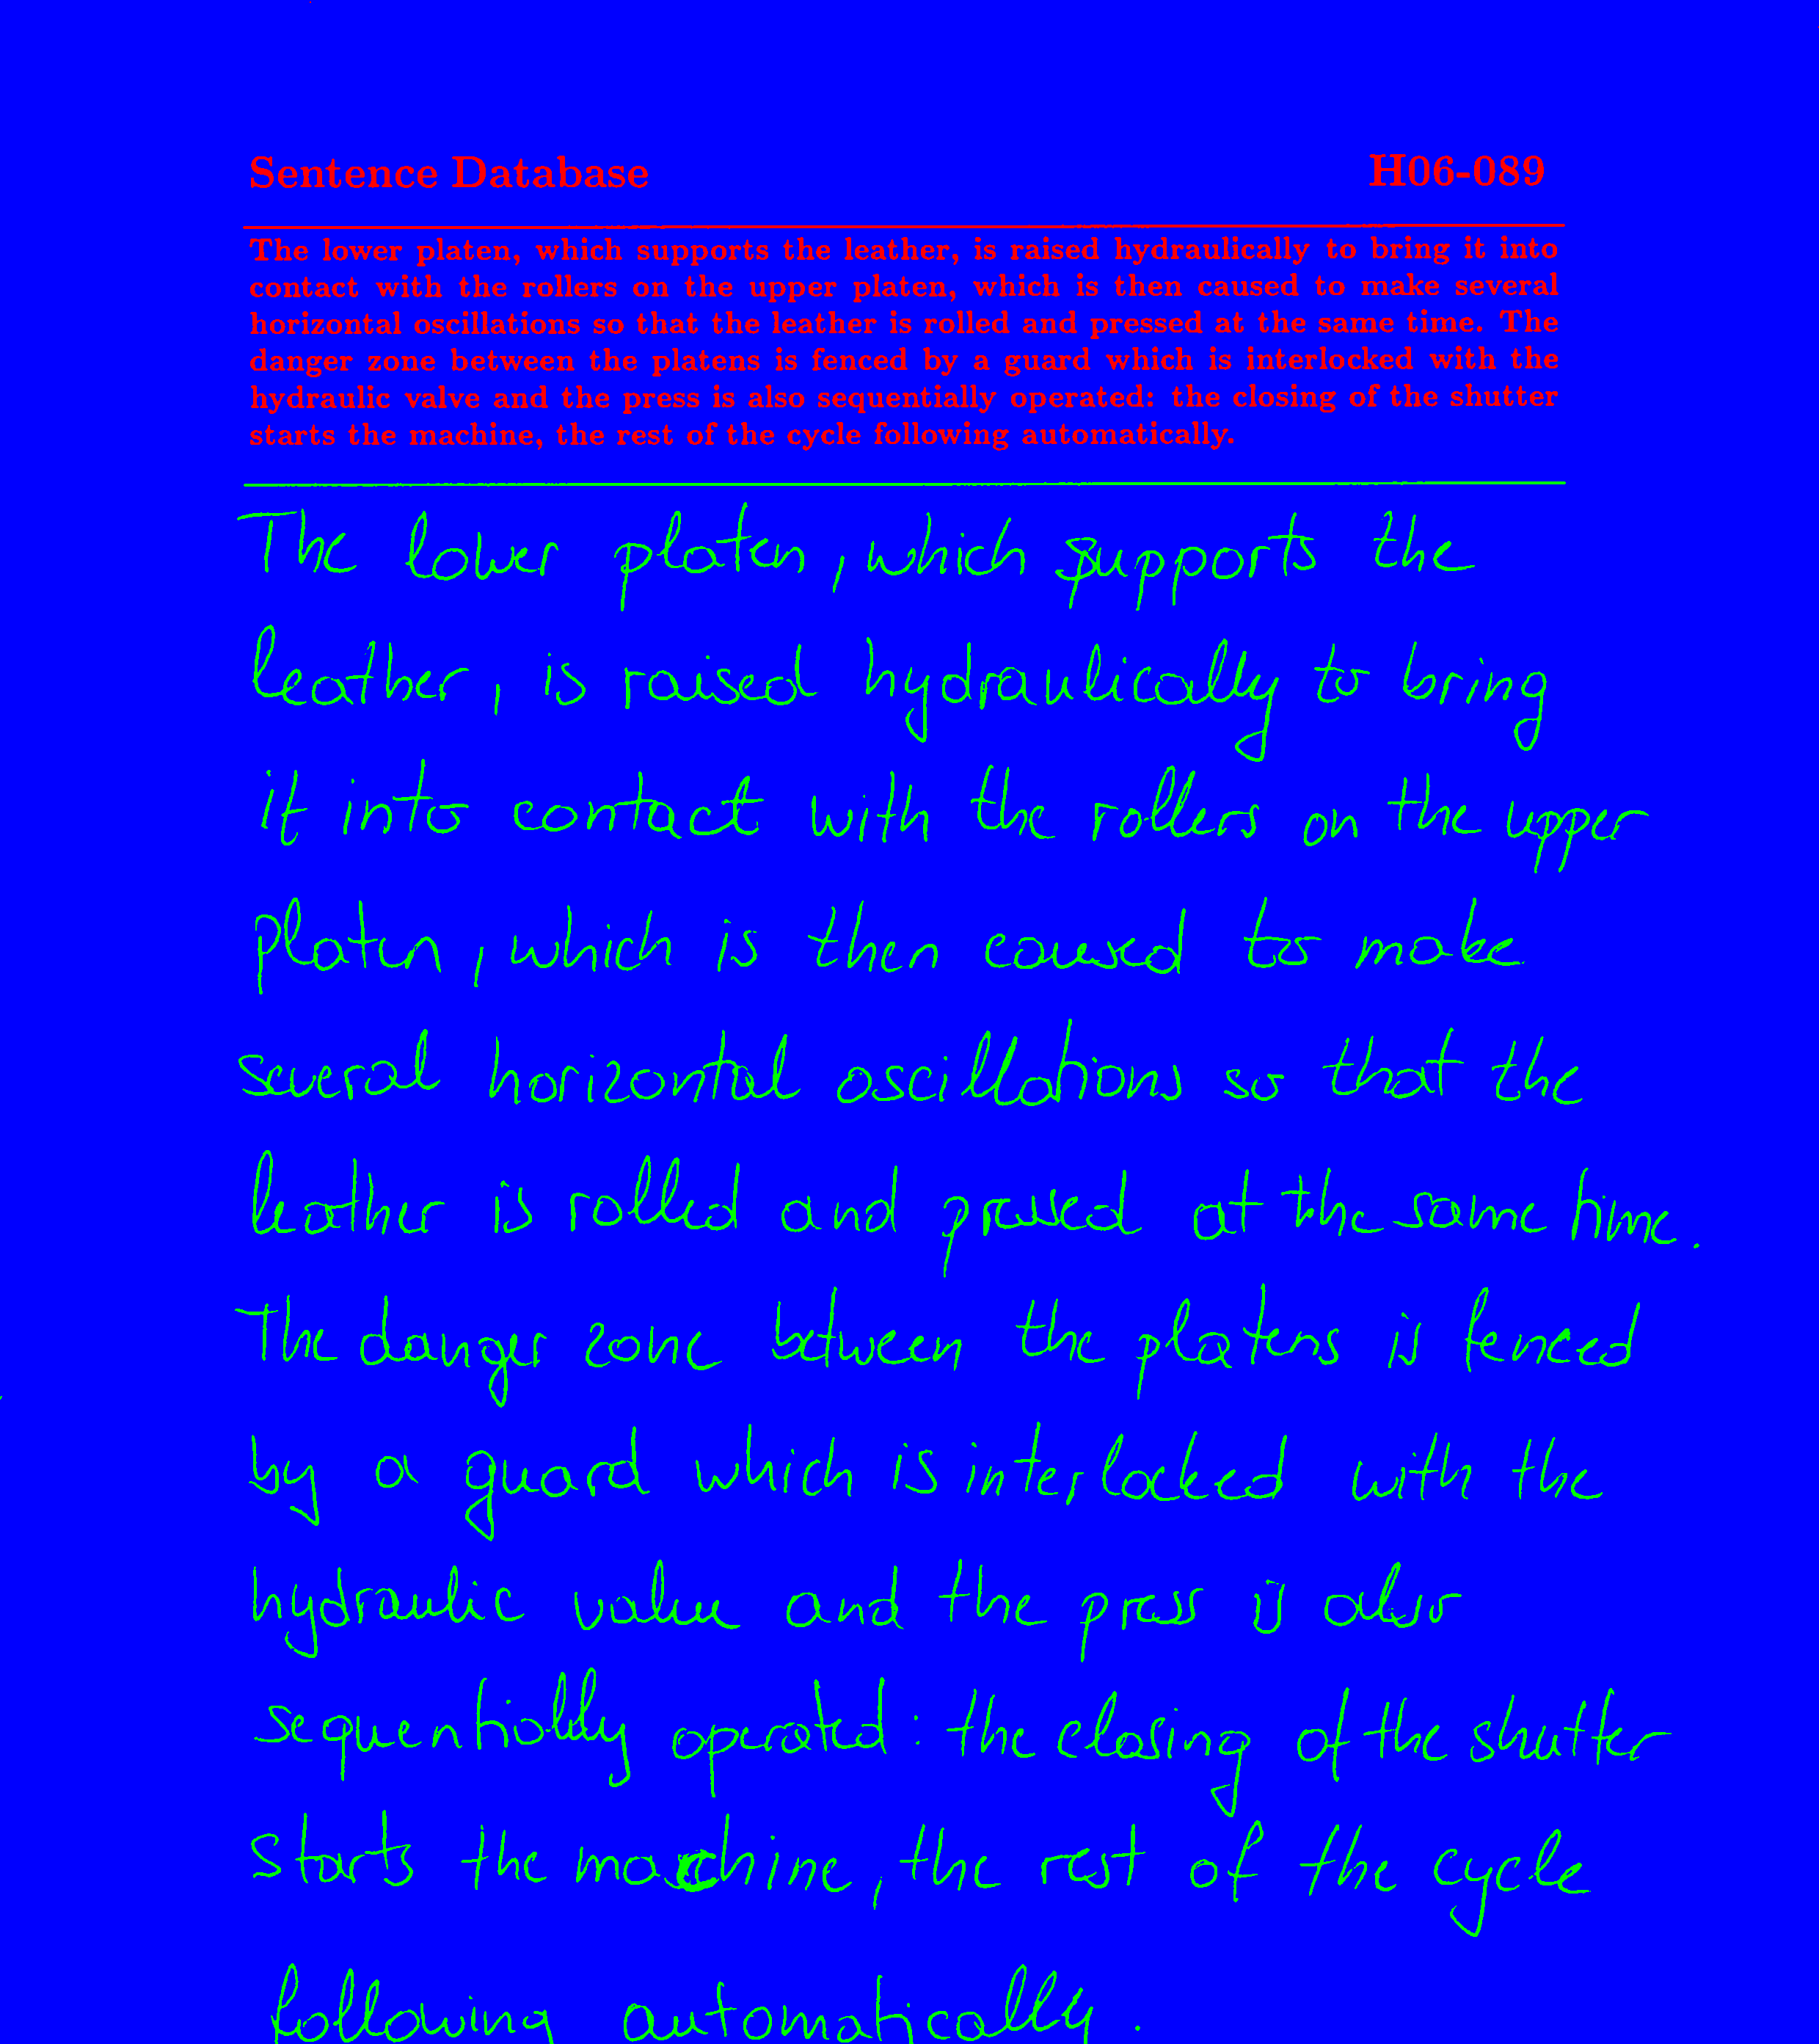 Sentence Database H06-089
The lower platen, which supports the leather, is raised hydraulically to bring it into
contact with the rollers on the upper platen, which is then caused to make several
horizontal oscillations so that the leather is rolled and pressed at the same time. The
danger zone between the platens is fenced by a guard which is interlocked with the
hydraulic valve and the press is also sequentially operated: the closing of the shutter
starts the machine, the rest of the cycle following automatically.
The lower platen, which supports the
leather, is raised hydraulically to bring
it into contact with the rollers on the upper
platen, which is then caused to make
several horizontal oscillations so that the
leather is rolled and pressed at the same time.
The danger zone between the platens is fenced
by a guard which is interlocked with the
hydraulic valve and the press is also
sequentially operated: the closing of the shutter
starts the machine, the rest of the cycle
following automatically.